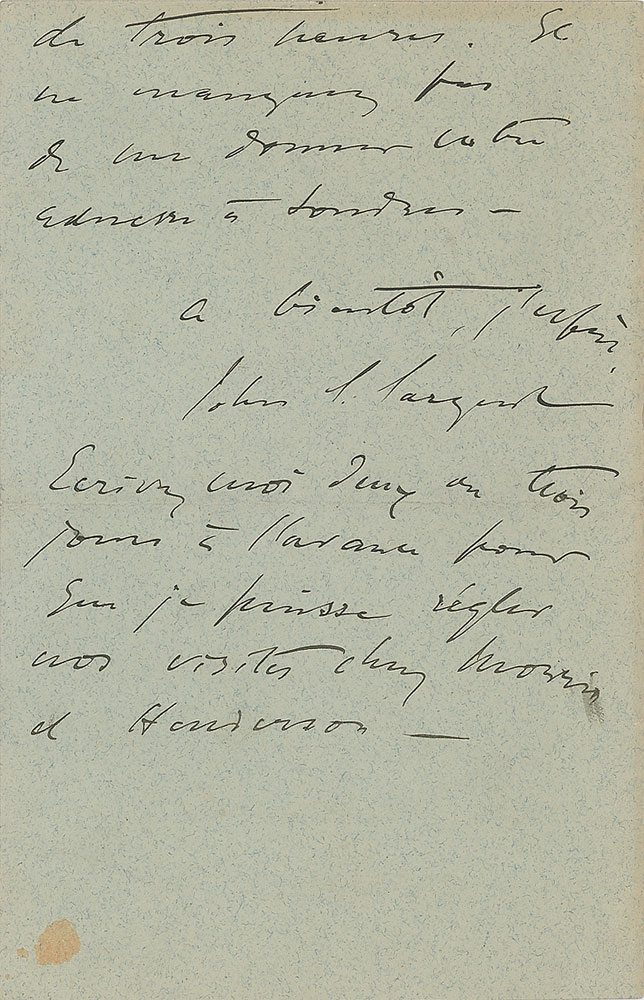 de trois heures. Et
ne manquez pas
de me donner votre
adresse à Londres —
a bientôt, j'espère.
John S. Sargent
Ecrivez moi deux ou trois
jours à l'avance pour
que je puisse régler
nos visites chez Morris
et Henderson —